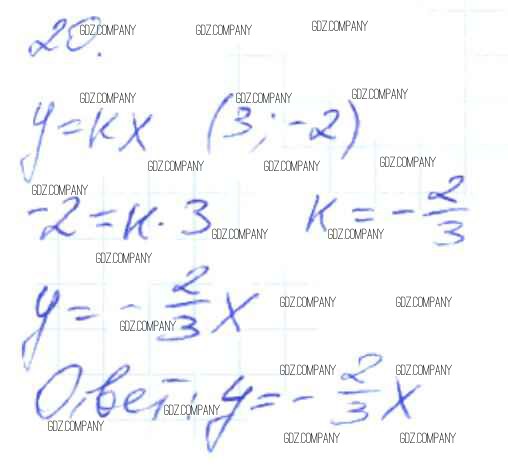 20.
y = kx (3; -2)
-2 = k · 3 k = -2/3
y = -2/3 x
Ответ: y = -2/3 x
GDZ.COMPANY GDZ.COMPANY GDZ.COMPANY
GDZ.COMPANY GDZ.COMPANY GDZ.COMPANY
GDZ.COMPANY GDZ.COMPANY GDZ.COMPANY
GDZ.COMPANY GDZ.COMPANY GDZ.COMPANY
GDZ.COMPANY
GDZ.COMPANY GDZ.COMPANY GDZ.COMPANY
GDZ.COMPANY GDZ.COMPANY GDZ.COMPANY
GDZ.COMPANY GDZ.COMPANY GDZ.COMPANY